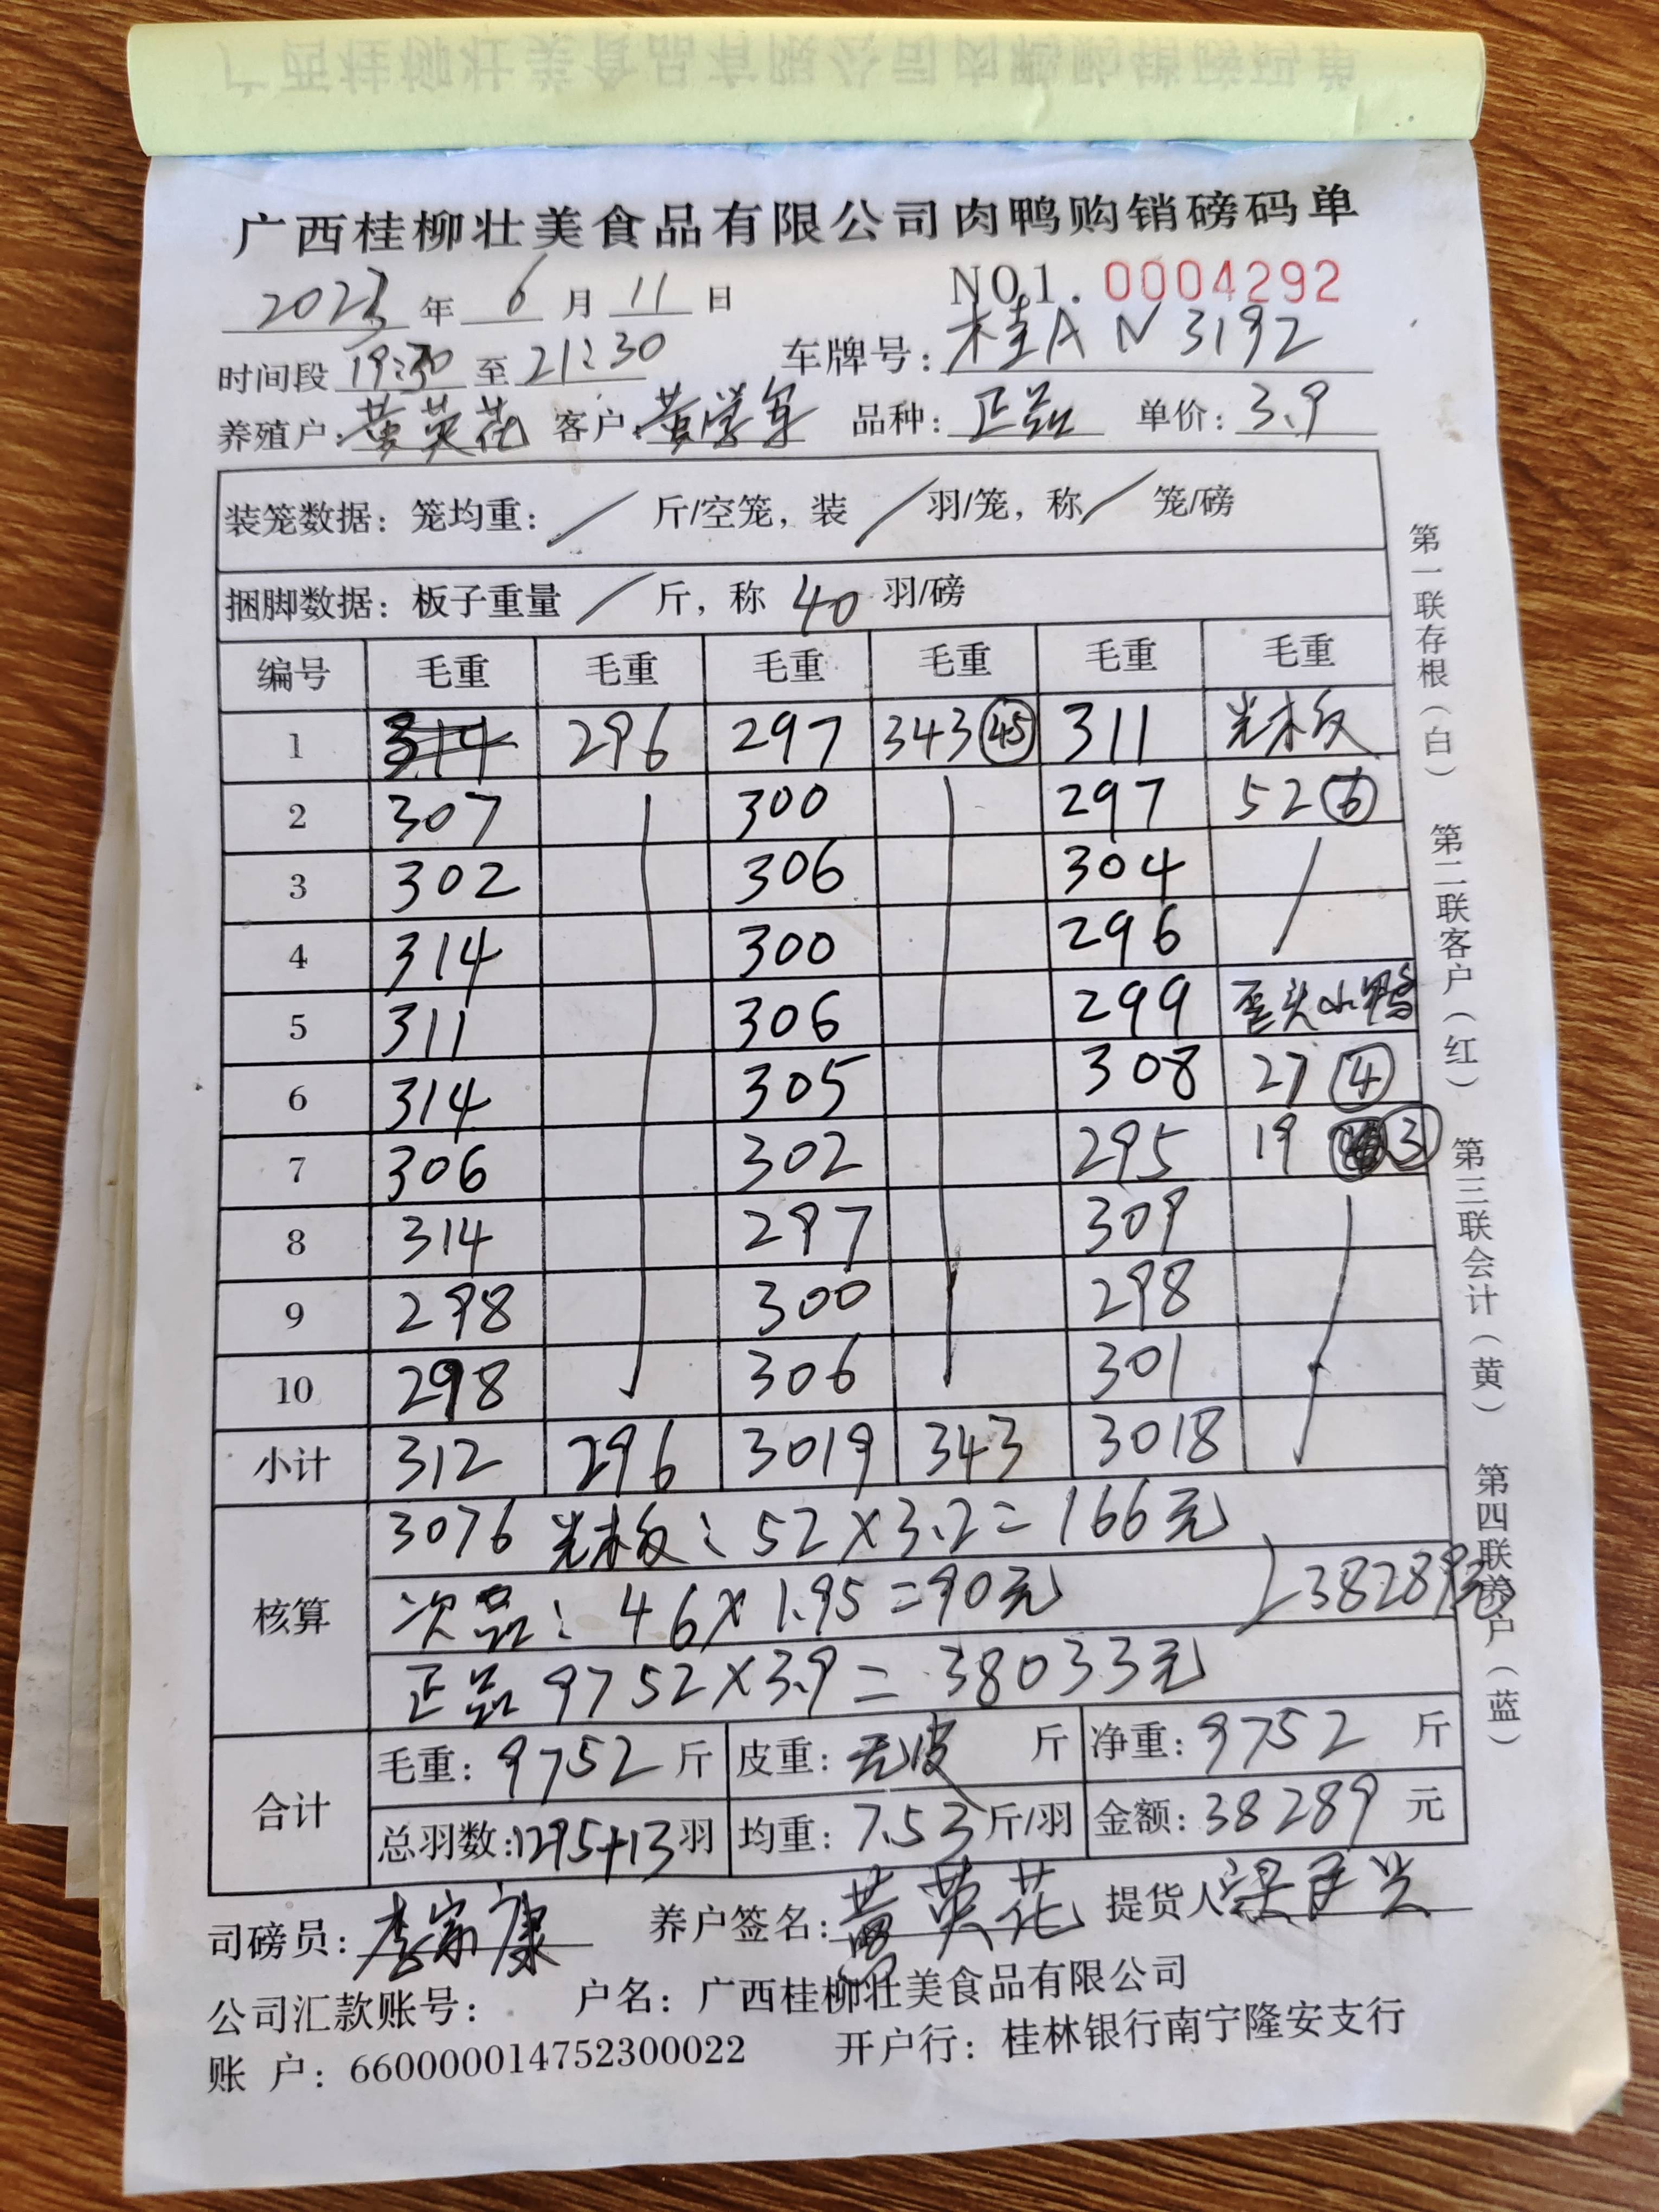 广西桂柳壮美食品有限公司肉鸭购销磅码单
广西桂柳壮美食品有限公司肉鸭购销磅码单
2023年 6月 11日 NO1. 0004292
时间段 19:30 至 21:30 车牌号: 桂A N3192
养殖户: 黄英花 客户: 黄学军 品种: 正品 单价: 3.9
装笼数据: 笼均重: / 斤/空笼, 装 / 羽/笼, 称 / 笼/磅
捆脚数据: 板子重量 / 斤, 称 40 羽/磅
编号 毛重 毛重 毛重 毛重 毛重 毛重
1 314 296 297 343 45 311 光木板
2 307 300 297 52 6
3 302 306 304
4 314 300 296
5 311 306 299 歪头小鸭
6 314 305 308 27 4
7 306 302 295 19 3
8 314 297 309
9 298 300 298
10 298 306 301
小计 312 296 3019 343 3018
核算
3076 光木板: 52×3.2=166元
次品: 46×1.95=90元 38289元
正品 9752×3.9=38033元
合计
毛重: 9752 斤 皮重: 无皮 斤 净重: 9752 斤
总羽数: 1295+13 羽 均重: 7.53 斤/羽 金额: 38289 元
司磅员: 李家康 养户签名: 黄英花 提货人
公司汇款账号: 户名: 广西桂柳壮美食品有限公司
账 户: 660000014752300022 开户行: 桂林银行南宁隆安支行
第一联存根(白) 第二联客户(红) 第三联会计(黄) 第四联养户(蓝)